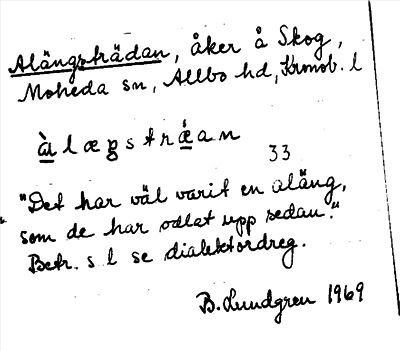 Alängsträdan, åker å Skog,
Moheda sn, Allbo hd, Kronob. l
àlægstræ̀an
33
"Det har väl varit en aläng,
som de har odlat upp sedan."
Betr. s l se dialektordreg.
B. Lundgren 1969